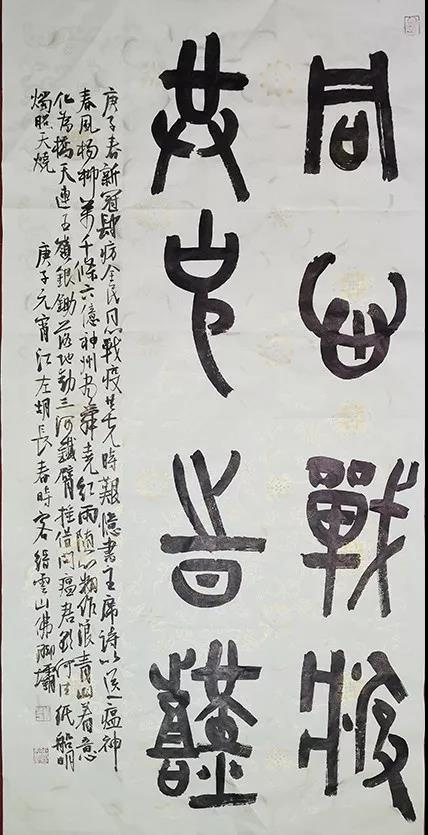 同心戰疫
共克旹囏
庚子春新冠肆全民同心戰疫共克時艱憶書主席詩以送瘟神
春風楊柳萬千條六億神州盡舜堯紅雨隨心翻作浪青山着意
化為橋天連五嶺銀鋤落地動三河鐵臂搖借問瘟君欲何往紙船明
燭照天燒 庚子元宵江左胡長春時客縉雲山佛湖壩